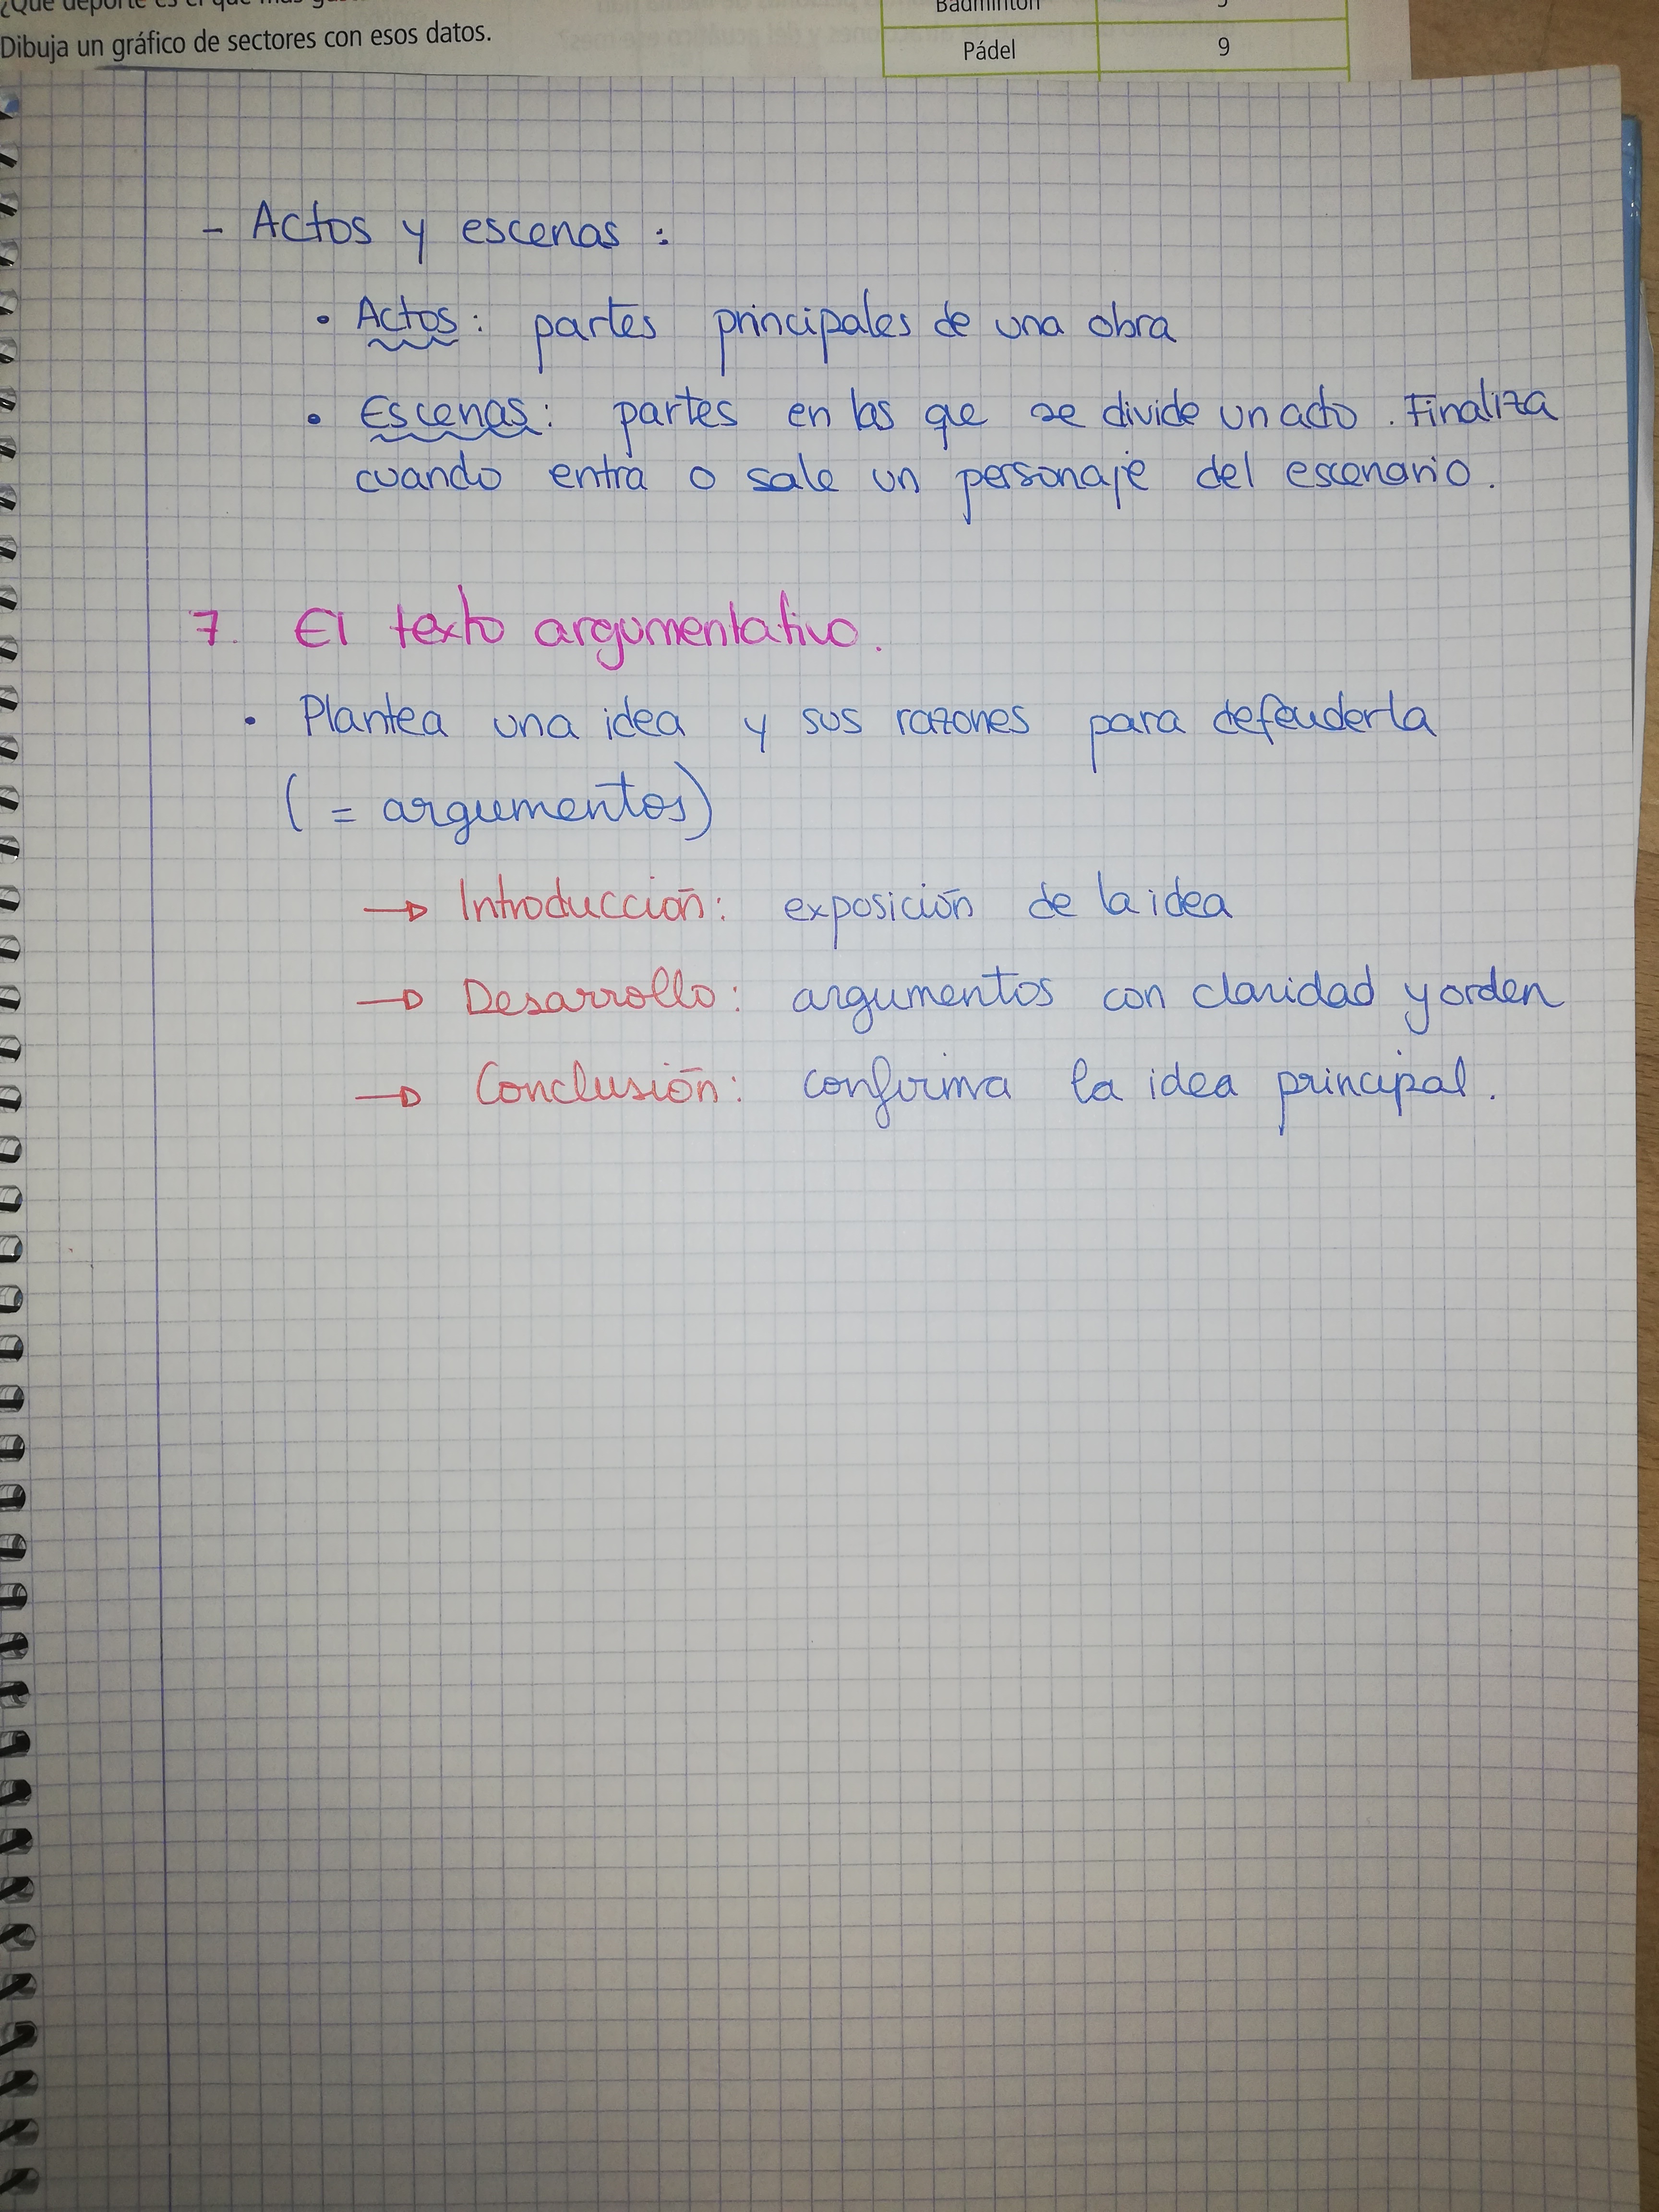 Dibuja un gráfico de sectores con esos datos.
Bádminton
Pádel 9
- Actos y escenas :
• Actos: partes principales de una obra
• Escenas: partes en las que se divide un acto. Finaliza
cuando entra o sale un personaje del escenario.
7. El texto argumentativo.
• Plantea una idea y sus razones para defenderla
( = argumentos)
→ Introducción: exposición de la idea
→ Desarrollo: argumentos con claridad y orden
→ Conclusión: confirma la idea principal.